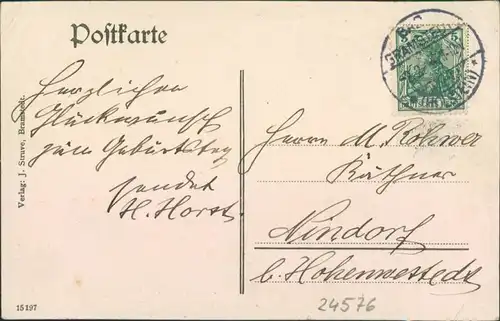 Postkarte
5
BRAMSTEDT
Herzlichen
Glückwunsch
zum Geburtstag
sendet
H. Horst.
Herrn M. Rohwer
Käthner
Nindorf
b. Hohenwestedt
Verlag: J. Struve, Bramstedt.
15197
24576